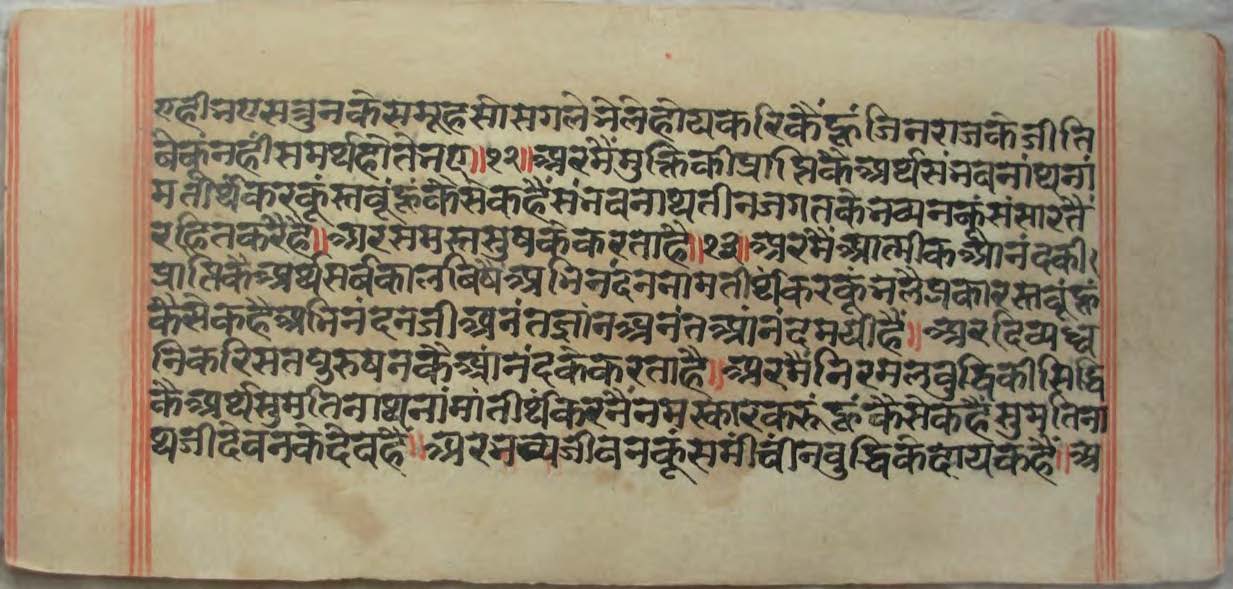 एहीनएसत्रुनकेसमूहसोसगलेभेलेहोयकरिकैंहूंजिनराजकेजीति
बेकूंनहींसमर्थहोतेनए॥१२॥अरमैंमुक्तिकीप्राप्तिकैअर्थसंभवनांथनां
मतीर्थंकरकूंस्तवूंहूंकैसेकहैंसंभवनाथतीनजगतकेभव्यनकूंसंसारतैं
रहितकरैहै॥अरसमस्तसुषकेकरताहै॥१३॥अरमैंआत्मीकआनंदकी
प्राप्तिकैअर्थसर्वकालबिषैंअभिनंदननामतीर्थंकरकूंभलैप्रकारस्तवूंहूं
कैसेकहैअभिनंदनजीअनंतज्ञांनअनंतआंनंदमयीहैं॥अरदिव्यध्व
निकरिसतपुरुषनकैआंनंदकेकरताहै॥अरमैंनिरमलबुद्धिकीसिद्धि
कैअर्थसुमतिनाथनांमांतीर्थंकरनैंनमस्कारकरूंहूंकैसेकहैंसुमतिना
थजीदेवनकेदेवहैं॥अरभव्यजीवनकूंसमींचींनबुद्धिकेदायकहैं॥अ